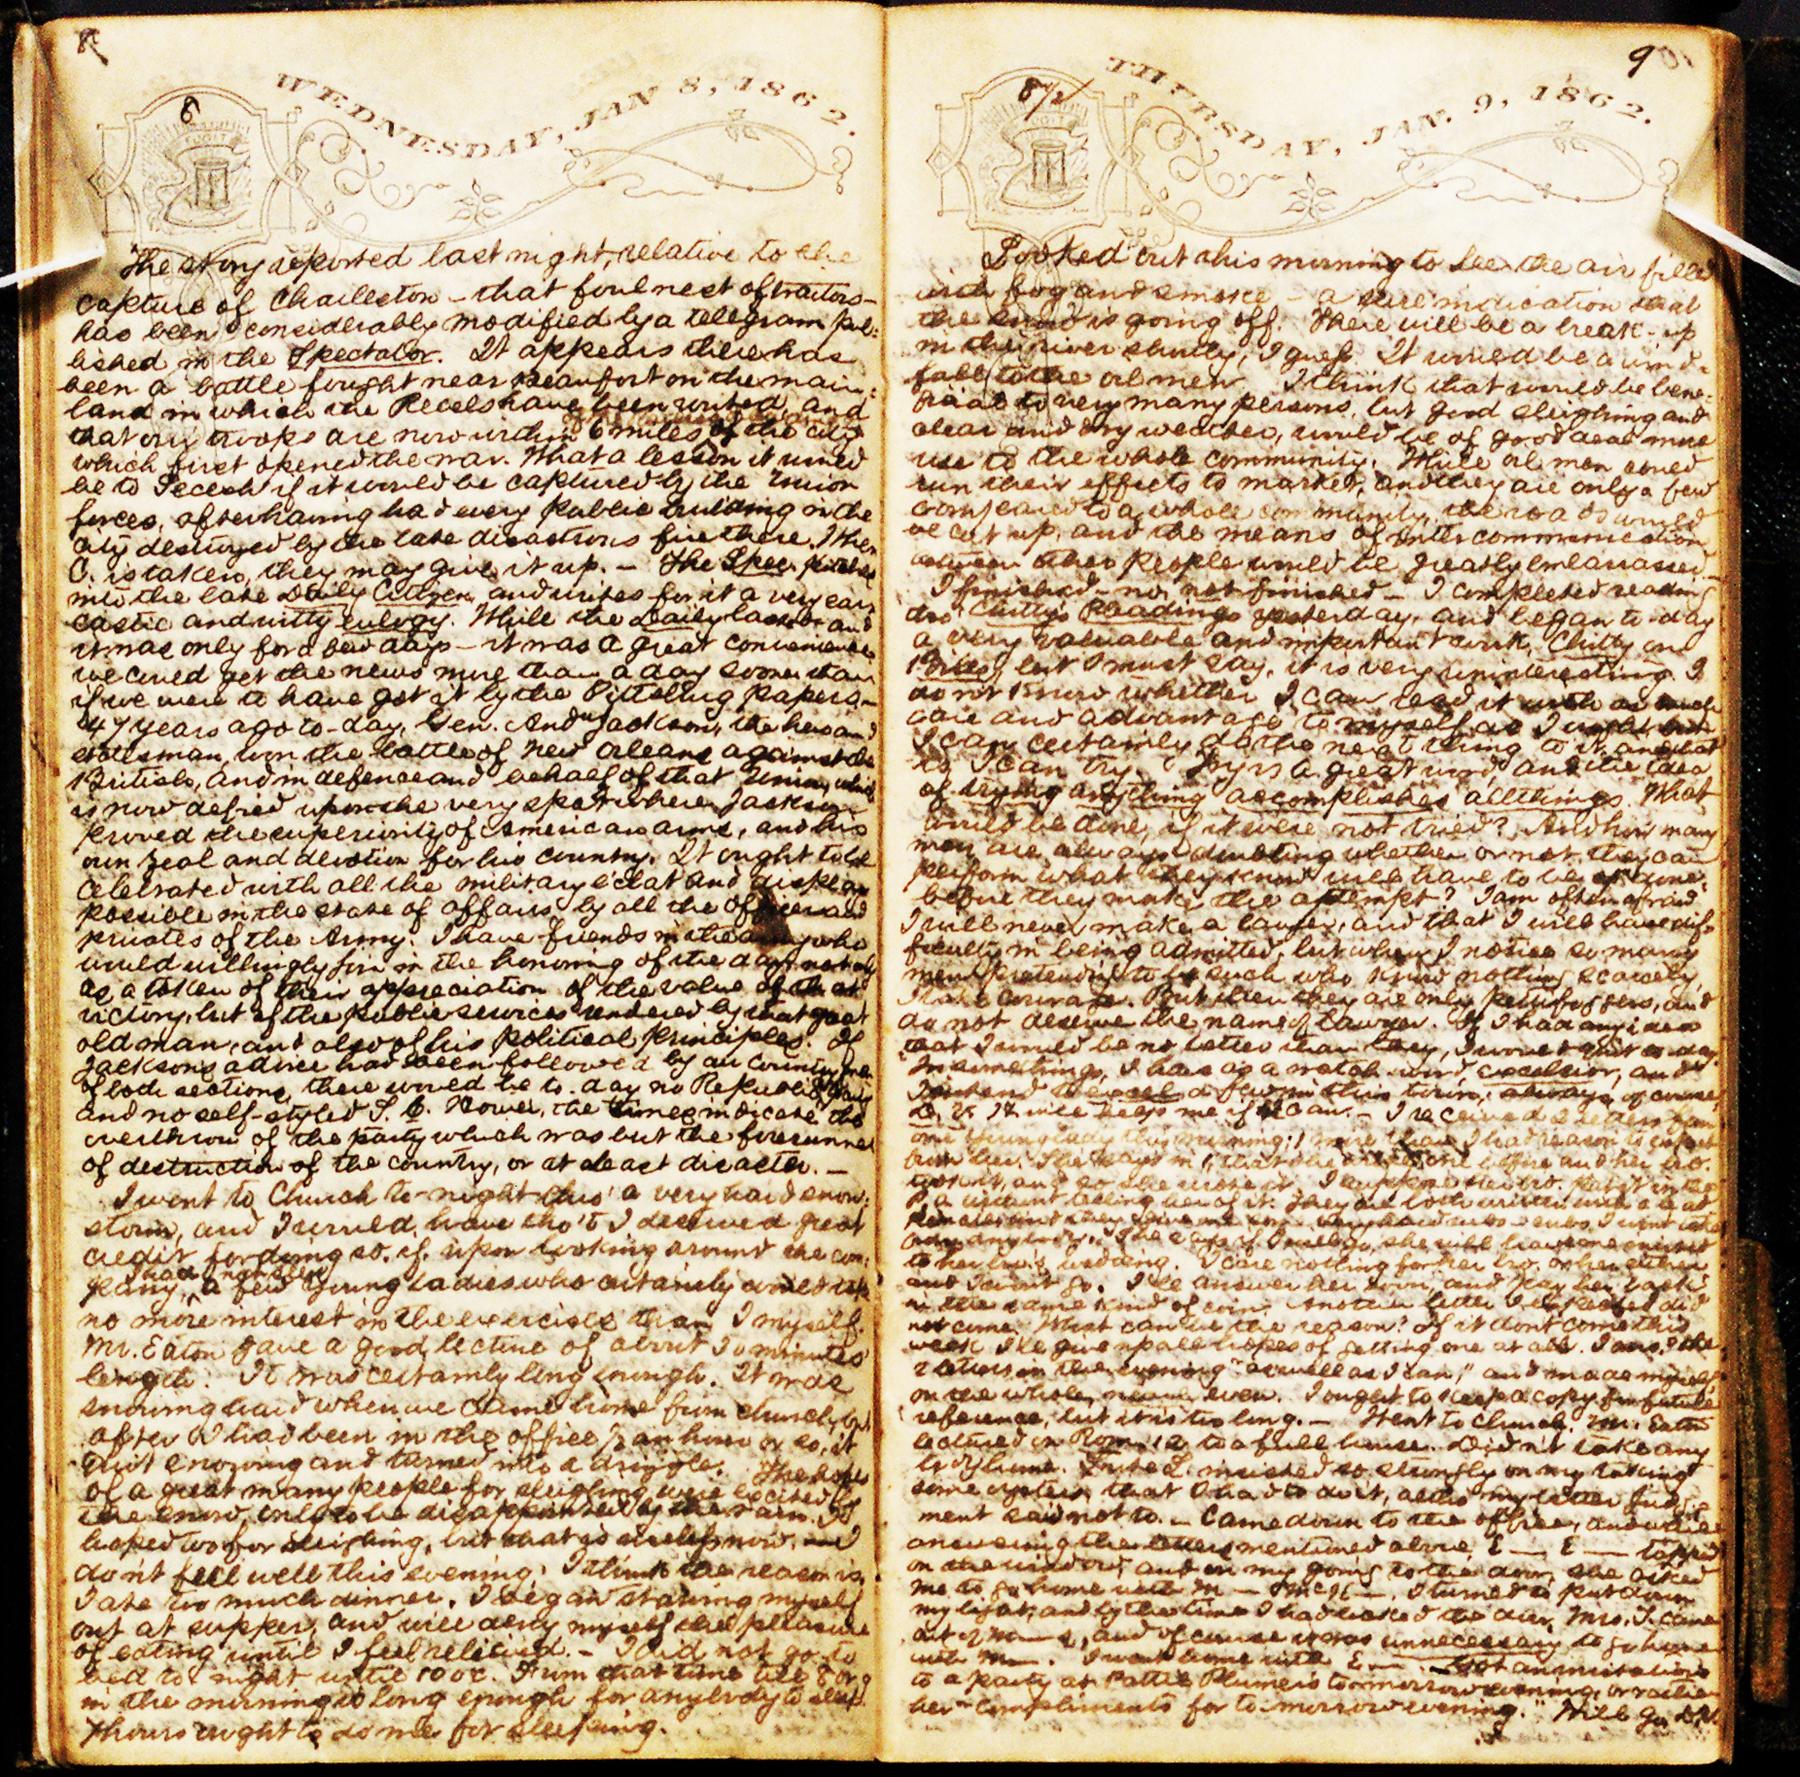 8
8
WEDNESDAY, JAN 8, 1862.
The story reported last night, relative to the
capture of Charleston - that foul nest of traitors -
has been considerably modified by a telegram pub-
lished in the Spectator. It appears there has
been a battle fought near Beaufort on the main-
land in which the Rebels have been routed and
that our troops are now within 6 miles of the city
which first opened the war. What a lesson it would
be to Secesh if it would be captured by the Union
forces, after having had every public building in the
city destroyed by the late disastrous fire there. When
C. is taken, they may give it up. - The Spec. pitches
into the late Daily Citizen, and writes for it a very sar-
castic and witty eulogy. While the Daily lasted and
it was only for a few days - it was a great convenience
we could get the news more than a day sooner than
if we were to have got it by the Pittsburg papers. -
47 years ago to-day, Gen. Andw Jackson, the hero and
statesman, won the battle of New Orleans against the
British, and in defence and behalf of that Union, which
is now defied upon the very spot where Jackson
proved the superiority of American arms, and his
own zeal and devotion for his country. It ought to be
celebrated with all the military eclat and display
possible in the state of affairs by all the officers and
privates of the Army. I have friends in the army who
would willingly join in the honoring of the day, not only
as a token of their appreciation of the value of that
victory, but of the public services rendered by that great
old man, and also of his political principles. If
Jackson's advice had been followed by our countrymen
of both sections, there would be to-day no Republic
and no self-styled S. C. However, the times indicate the
overthrow of the party which was but the forerunner
of destruction of the country, or at least disaster. -
I went to Church to-night thro' a very hard snow-
storm, and I would have tho't I deserved great
credit for doing so, if, upon looking around the com-
pany, I had not seen a few young ladies who certainly could take
no more interest in the exercises than I myself.
Mr. Eaton gave a good lecture of about 50 minutes
length. It was certainly long enough. It was
snowing hard when we came home from church, but
after I had been in the office ½ an hour or so, it
quit snowing and turned into a drizzle. The hopes
of a great many people for sleighing were excited by
the snow, only to be disappointed by the rain. I
hoped too for sleighing, but that is useless now. - I
don't feel well this evening. I think the reason is,
I ate too much dinner. I began starving myself
out at supper, and will deny myself the pleasure
of eating until I feel relieved. - I did not go to
bed to-night until 10 oc. From that time till 8 or 9
in the morning is long enough for anybody to sleep.
7 hours ought to do me for sleeping.
9
8 1/2
THURSDAY, JAN. 9, 1862.
Looked out this morning to see the air filled
with fog and smoke - a sure indication that
the snow is going off. There will be a break-up
in the river shortly, I guess. It would be a wind-
fall to the oil men. I think that would be bene-
ficial to very many persons, but good sleighing and
clear and dry weather, would be of good deal more
use to the whole community. While oil men could
run their effects to market, and they are only a few
compared to a whole community, the roads would
be cut up, and the means of intercommunication
between other people would be greatly embarrassed. -
I finished - no, not finished - I completed reading
thro' Chitty's Pleadings yesterday, and began to-day
a very valuable and important work, Chitty on
Bills, but I must say, it is very uninteresting. I
don't know whether I can read it with as much
care and advantage to myself as I ought, but
I can certainly do the next thing to it, and that
is I can try. Try is a great word and the idea
of trying anything accomplishes all things. What
would be done, if it were not tried? And how many
men are always doubting whether or not they can
perform what they know will have to be done,
before they make the attempt? I am often afraid
I will never make a lawyer, and that I will have dif-
ficulty in being admitted, but when I notice so many
men pretending to be such who know nothing scarcely,
I take courage. But then they are only pettifoggers, and
do not deserve the name of Lawyer. If I had any idea
that I would be no better than they, I would quit to-day.
In something, I has as a watch-word excelsior, and
I intend to excel a few in this town, always, of course,
D. V. It will help me if it can. - I received 2 letters from
one young lady this morning; 1 more than I had reason to expect
from her. She says in 1, that she wrote one before and her bro.
to her bro's wedding. I care nothing for her bro. or her either
and I won't go. I'll answer her soon, and pay her back
in the same kind of coin. Another letter I expected did
not come. What can be the reason? If it don't come this
week I'll give up all hopes of getting one at all. I ans'd the
2 letters in the evening "as well as I can," and made myself
on the whole, even. I ought to keep a copy for future
reference, but it is too long. - Went to Church. Mr. Eaton
lectured in Rom. 12 to a full house. Didn't take any
body home. L. insisted so strongly on my taking
some oysters, that I had to do it, altho my better judg-
ment said not to. - Came down to the office, and while
answering the letters mentioned above, E— E— tapped
on the window, and on my going to the door, she asked
me to go home with M— McK—. I turned to put down
my light, and by the time I had locked the door, Mrs. T. came
out of M—s, and of course it was unnecessary to go home
with M—. I went home with E—. Got an invitation
to a party at Pattie Plumer's to-morrow evening, or rather
her "compliments for to-morrow evening." Will go, D.V.